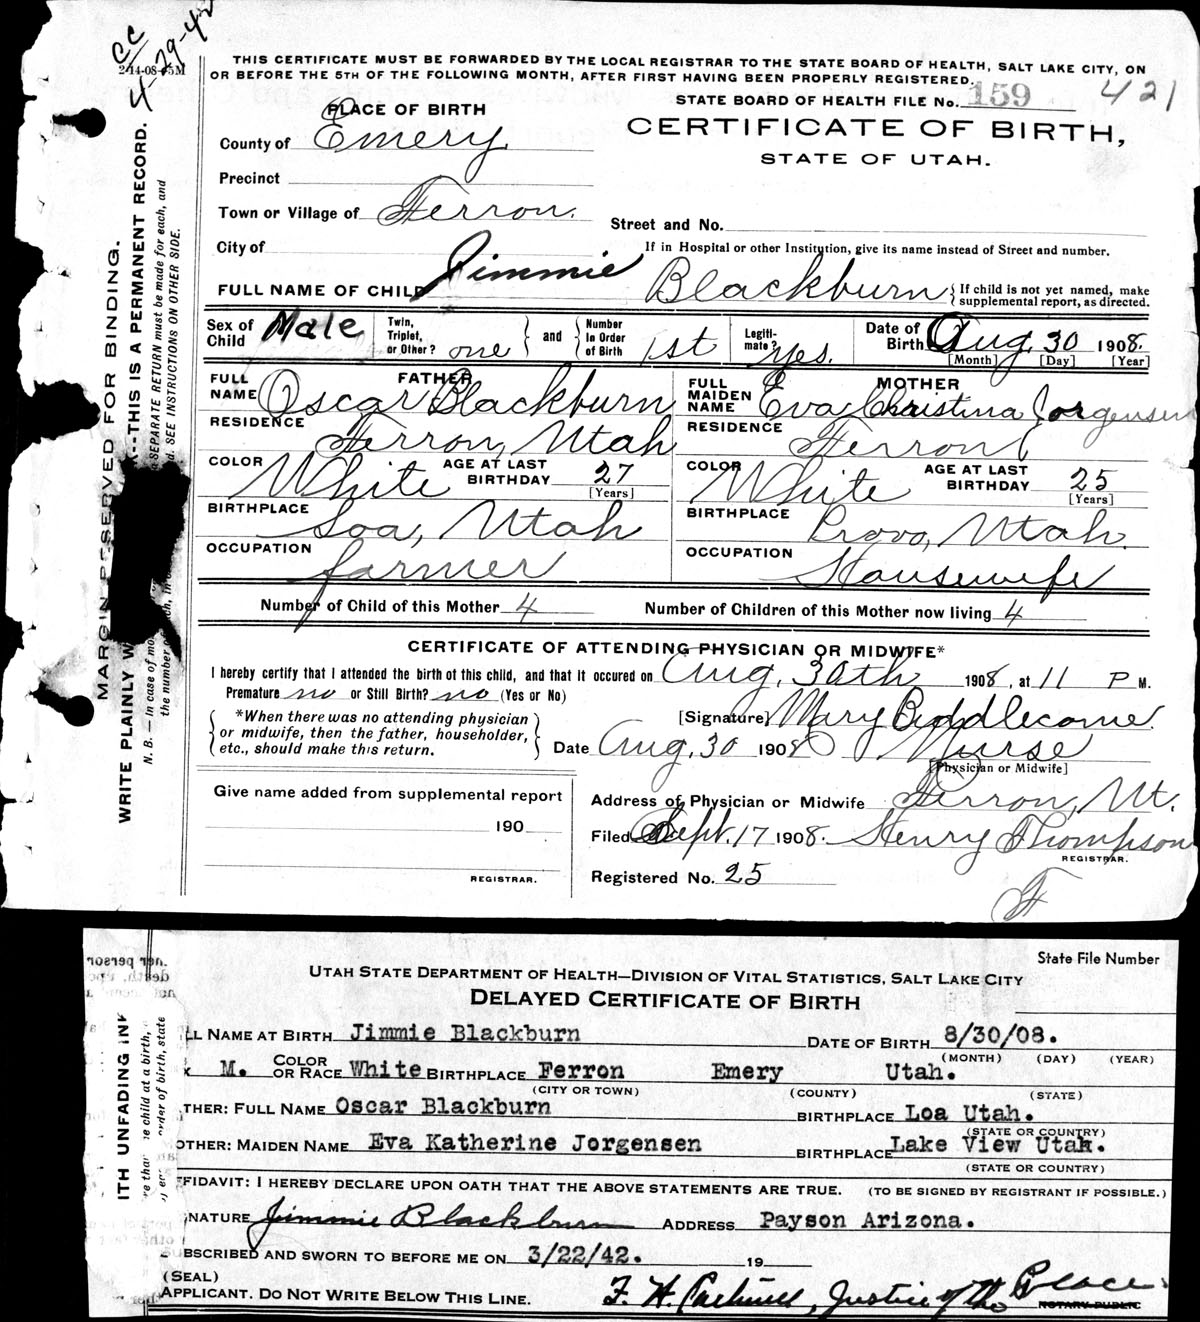 CC
4 29-42
2-14-08-15M
THIS CERTIFICATE MUST BE FORWARDED BY THE LOCAL REGISTRAR TO THE STATE BOARD OF HEALTH, SALT LAKE CITY, ON
OR BEFORE THE 5TH OF THE FOLLOWING MONTH, AFTER FIRST HAVING BEEN PROPERLY REGISTERED.
STATE BOARD OF HEALTH FILE No. 159 421
PLACE OF BIRTH
CERTIFICATE OF BIRTH,
STATE OF UTAH.
County of Emery
Precinct
Town or Village of Ferron.
Street and No.
City of
If in Hospital or other Institution, give its name instead of Street and number.
FULL NAME OF CHILD Jimmie Blackburn { If child is not yet named, make supplemental report, as directed.
Sex of Child Male Twin, Triplet, or Other? one } and { Number In Order of Birth 1st Legiti-mate? Yes. Date of Birth Aug. 30 1908.
[Month] [Day] [Year]
FATHER
FULL NAME Oscar Blackburn
RESIDENCE Ferron, Utah
COLOR White AGE AT LAST BIRTHDAY 27 [Years]
BIRTHPLACE Loa, Utah
OCCUPATION farmer
MOTHER
FULL MAIDEN NAME Eva Christina Jorgensen
RESIDENCE Ferron
COLOR White AGE AT LAST BIRTHDAY 25 [Years]
BIRTHPLACE Provo, Utah.
OCCUPATION Housewife
Number of Child of this Mother 4 Number of Children of this Mother now living 4
CERTIFICATE OF ATTENDING PHYSICIAN OR MIDWIFE*
I hereby certify that I attended the birth of this child, and that it occured on Aug. 30th 1908, at 11 P M.
Premature no or Still Birth? no (Yes or No)
{ *When there was no attending physician or midwife, then the father, householder, etc., should make this return. }
[Signature] Mary Biddlecome
Date Aug. 30 1908 Nurse
[Physician or Midwife]
Give name added from supplemental report
190
REGISTRAR.
Address of Physician or Midwife Ferron, Ut.
Filed Sept. 17 1908. Henry Thompson
REGISTRAR.
Registered No. 25
MARGIN RESERVED FOR BINDING.
WRITE PLAINLY W K--THIS IS A PERMANENT RECORD.
N. B. — In case of mo a SEPARATE RETURN must be made for each, and
the number ch, in d. SEE INSTRUCTIONS ON OTHER SIDE.
State File Number
UTAH STATE DEPARTMENT OF HEALTH—DIVISION OF VITAL STATISTICS, SALT LAKE CITY
DELAYED CERTIFICATE OF BIRTH
LL NAME AT BIRTH Jimmie Blackburn DATE OF BIRTH 8/30/08.
(MONTH) (DAY) (YEAR)
x M. COLOR OR RACE White BIRTHPLACE Ferron Emery Utah.
(CITY OR TOWN) (COUNTY) (STATE)
THER: FULL NAME Oscar Blackburn BIRTHPLACE Loa Utah.
(STATE OR COUNTRY)
OTHER: MAIDEN NAME Eva Katherine Jorgensen BIRTHPLACE Lake View Utah.
(STATE OR COUNTRY)
FFIDAVIT: I HEREBY DECLARE UPON OATH THAT THE ABOVE STATEMENTS ARE TRUE. (TO BE SIGNED BY REGISTRANT IF POSSIBLE.)
NATURE Jimmie Blackburn ADDRESS Payson Arizona.
UBSCRIBED AND SWORN TO BEFORE ME ON 3/22/42. 19
(SEAL)
APPLICANT. DO NOT WRITE BELOW THIS LINE.
Justice of the Peace
NOTARY PUBLIC
ITH UNFADING INK
e child at a birth,
order of birth, state